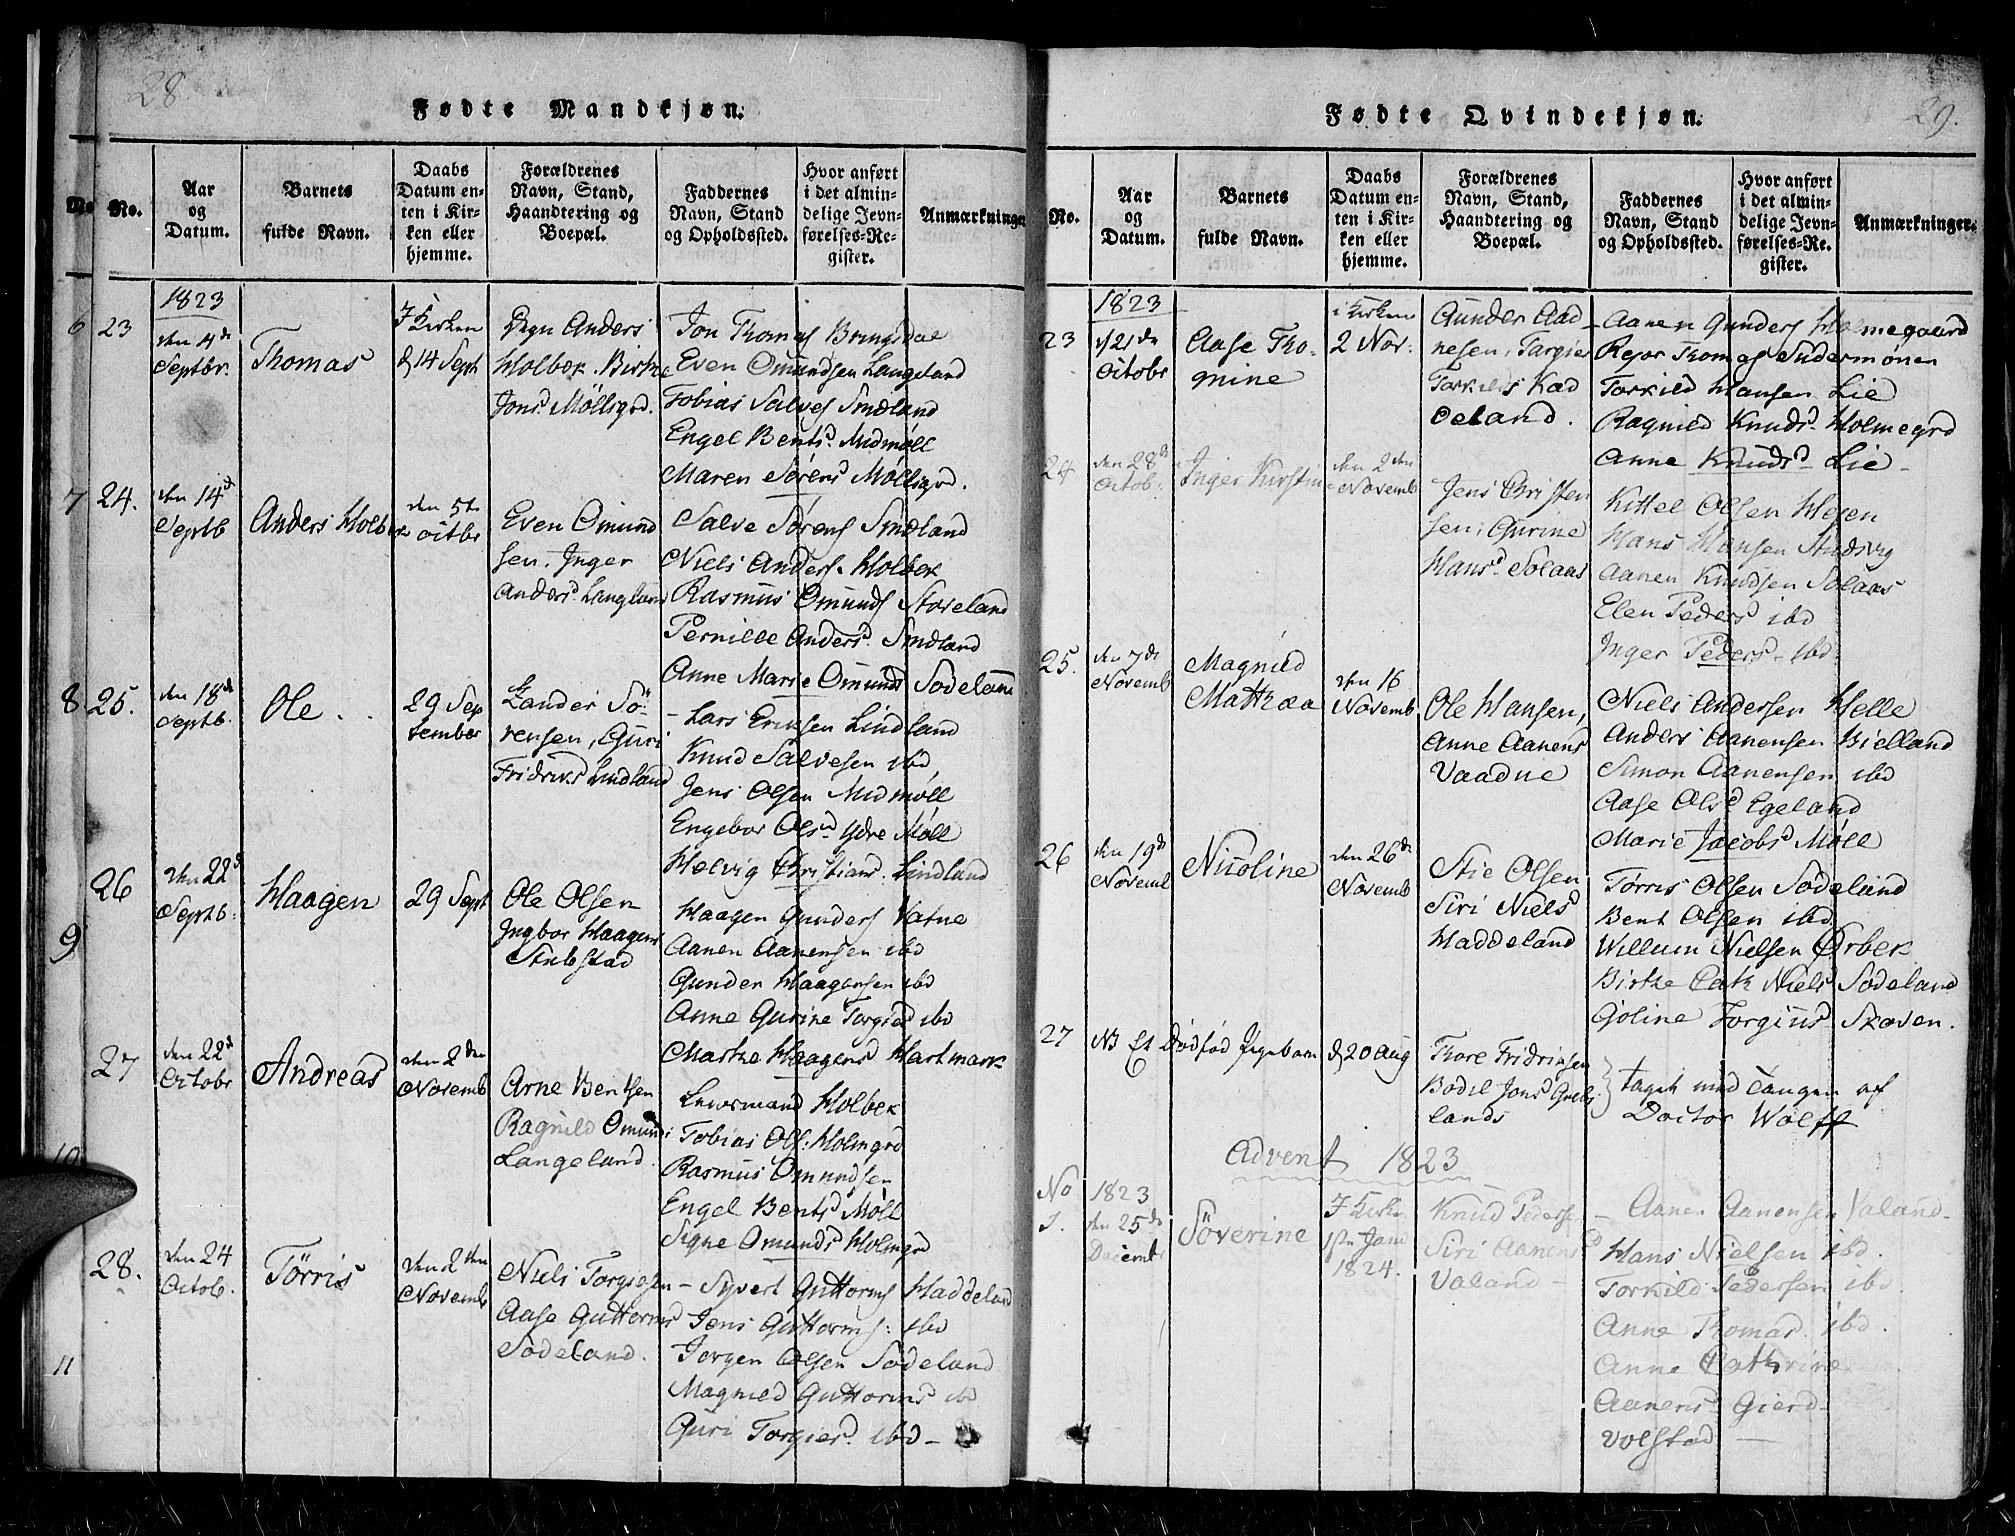 28.
Fødte Mandkjøn.
No.
Aar og Datum.
Barnets fulde Navn.
Daabs Datum enten i Kirken eller hjemme.
Forældrenes Navn, Stand, Haandtering og Boepæl.
Faddernes Navn, Stand og Opholdssted.
Hvor anført i det almindelige Jevnførelses-Register.
Anmærkninger
23
1823
den 4de
Septbr.
Thomas
I Kirken
d 14 Sept
Anders
Holbek. Birthe
Jonsd Möllsgrd.
Jon Thomas Bringsdal
Even Omundsen Langeland
Tobias Salves Smedland
Engel Bentsd. Midmöll
Maren Sörensd Möllsgrd.
24.
den 14d
Septb
Anders Holbek
den 5te
octbr
Even Omund
sen. Inger
Andersd. Langeland
Salve Sörens Smedland
Niels Anders. Holbek
Rasmus Omunds Stoveland
Pernille Andersd. Smedland
Anne Marie Omunds Sodeland
25.
den 18de
Septb.
Ole.
29 Sep
tember
Gunder Sö-
rensen, Guri
Fridriks Lindland
Lars Eriksen Lindland
Knud Salvesen ibd
Jens Olsen Midmöll
Engebor Olsd Ydre Möll
Helvig Christians. Lindland
26
den 22d
Septb.
Haagen
29 Sept
Ole Olsen
Ingbor Haagens
Stubstad
Haagen Gunders Vatne
Aanen Aanensen ibd
Gunder Haagensen ibd
Anne Gurine Torgies ibd
Marthe Haagens Hartmark
27
den 22d
Octobr
Andreas
den 2den
Novemb
Arne Bentsen
Ragnild Omunds
Langeland.
Lensmand Holbek
Tobias Ols. Holmgrd
Rasmus Omundsen
Engel Bentsd Möll
Signe Omundsd Holmgrd
28.
den 24
Octob.
Törris
den 2den
Novemb
Niels Torgiesen
Aase Guttorms
Sodeland.
Syvert Guttorms Haddeland
Jens Guttorms. ibd
Jorgen Olsen Sodeland
Magnild Guttormsd ibd
Guri Torgies. ibd
29.
Fødte Qvindekjøn.
No.
Aar og Datum.
Barnets fulde Navn.
Daabs Datum enten i Kirken eller hjemme.
Forældrenes Navn, Stand, Haandtering og Boepæl.
Faddernes Navn, Stand og Opholdssted.
Hvor anført i det almindelige Jevnførelses-Register.
Anmærkninger.
23
1823
d 21de
Octobr
Aase Tho-
mine
i Kirken
2 Nov:
Gunder Aad
nesen, Torgier
Torkilds Kad
deland.
Aanen Gunders Holmegaard
Rejer Thomas Sudermönen
Torkild Hansen Lie
Ragnild Knuds. Holmegrd
Anne Knudsd Lie
24
den 28d
Octob.
Inger Kirstin
den 2den
Novemb
Jens Christen
sen, Gurine
Hansd. Solaas
Kittel Olsen Hesen
Hans Hansen Studsvig
Aanen Knudsen Solaas
Elen Pedersd ibd
Inger Peders ibd
25.
den 7de
Novemb
Magnild
Mathea
den 16
Novemb
Ole Hansen,
Anne Aanens
Vaadne
Niels Andersen Helle
Anders Aanensen Bielland
Simon Aanensen ibd
Aase Olsd Egeland
Marie Jacobsd Möll
26
den 19d
Novemb
Nicoline
den 26de
Novemb
Stie Olsen
Siri Nielsd
Haddeland
Törris Olsen Sodeland
Bent Olsen ibd
Willum Nielsen Ørbek
Birthe Cath Niels Sodeland
Goline Torgius Skoven.
27
NB Et Dödföd Pigebarn
d 20 Aug
Thore Fridriksen
Bodil Jonsd
lands
tagit med Tangen af
Doctor Wolff
Advent 1823
No
1.
1823
den 25de
Decembr
Söverine
I Kirken
1ste Janu
1824.
Knud Peders
Siri Aanensd
Valand
Aanen Aanensen Valand
Hans Nielsen ibd.
Torkild Pedersen ibd
Anne Thomas. ibd.
Anne Cathrine
Aanensd Gierd
Volstad
6
7
8.
9
10
11